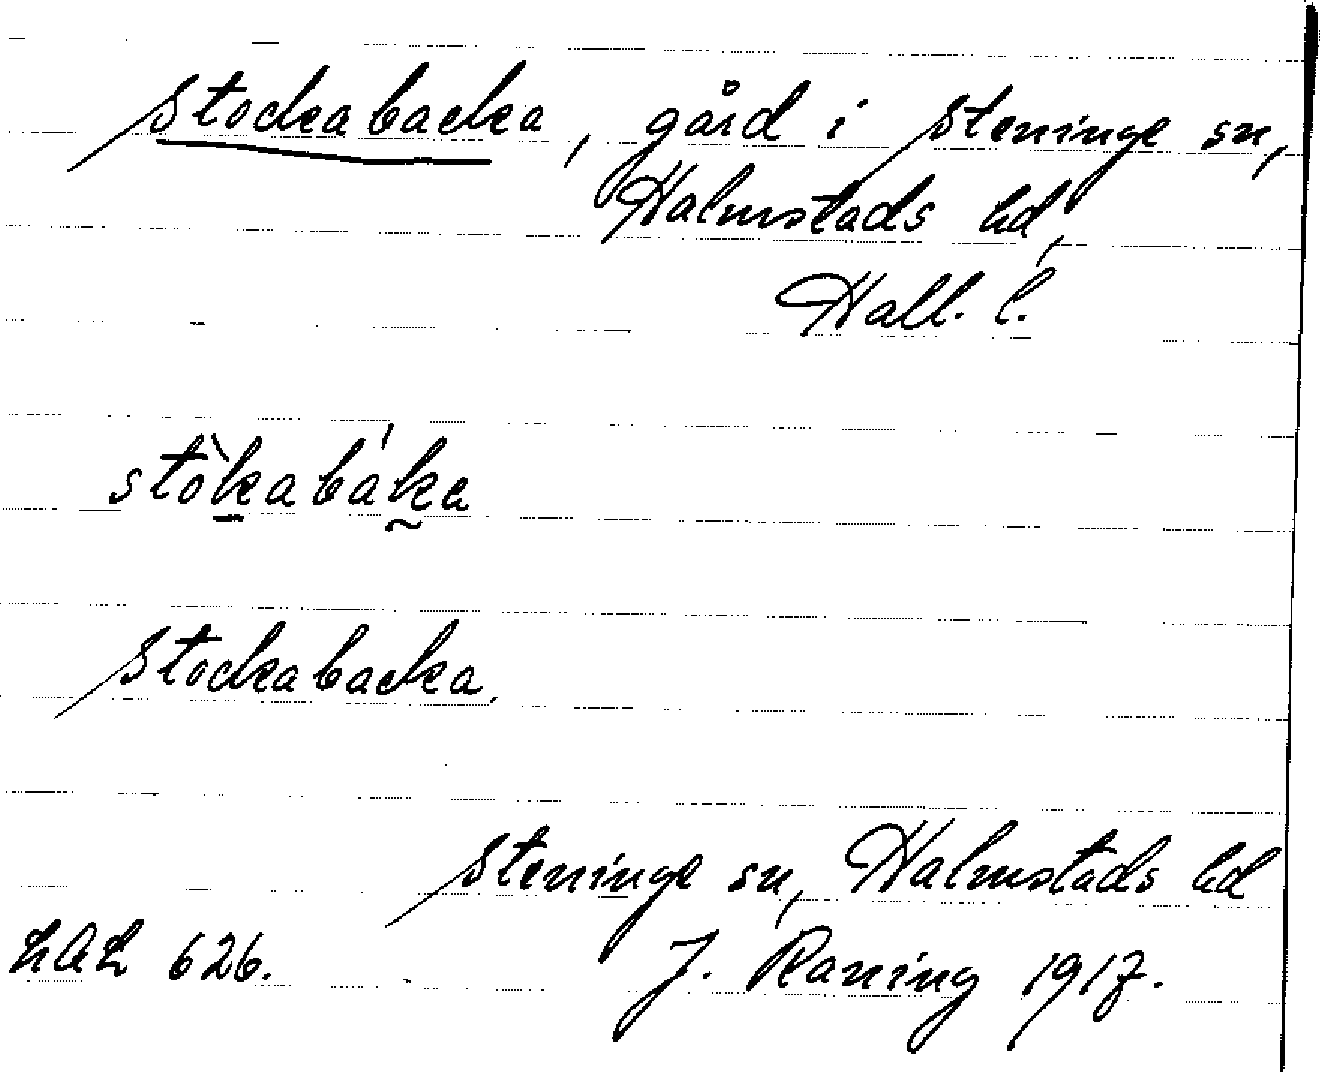 Stockabacka, gård i Steninge sn,
Halmstads hd,
Hall. l.
stòkabáka
Stockabacka.
Steninge sn, Halmstads hd
LAL 626. J. Raning 1917.